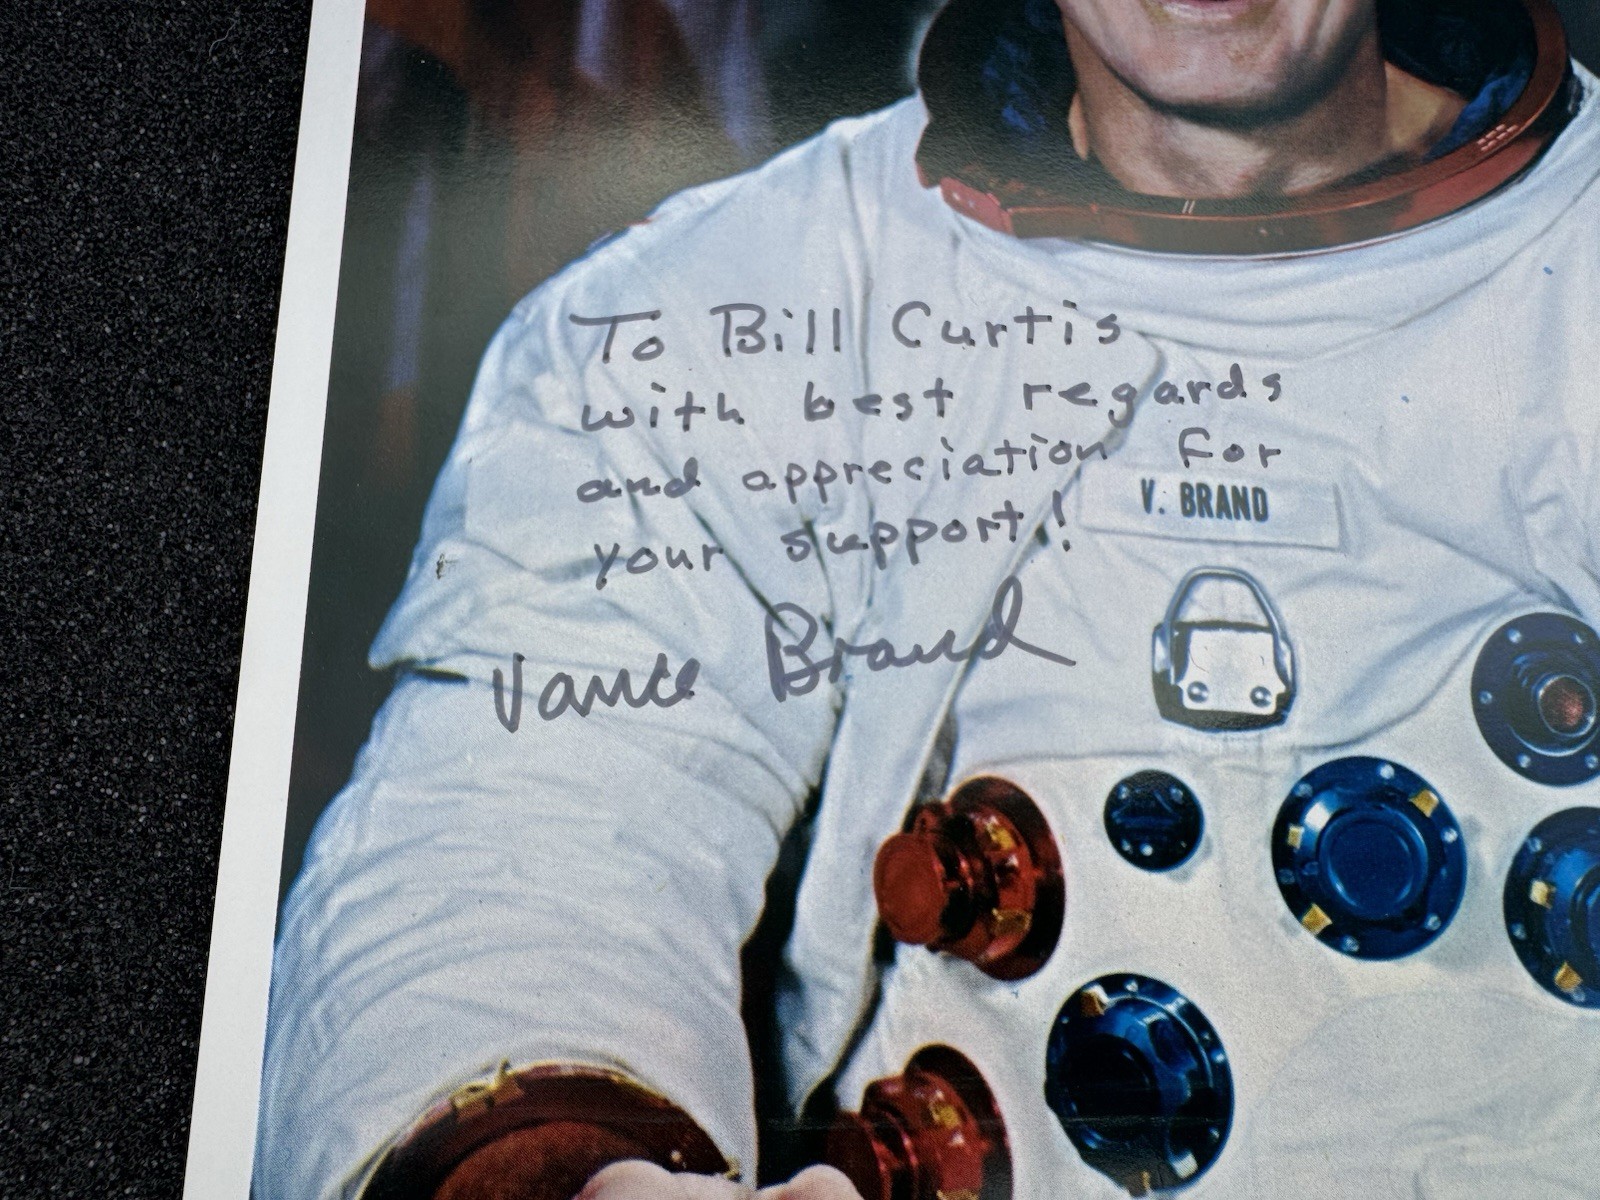 To Bill Curtis
with best regards
and appreciation for
your support!
Vance Brand
V. BRAND